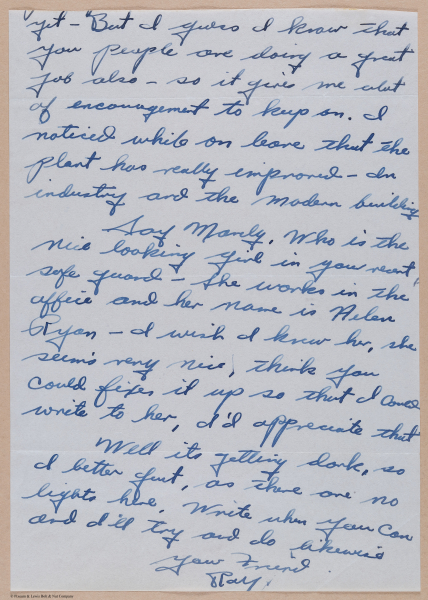 yet - "But I guess I know that
you people are doing a great
job also - so it gives me alot
of encouragement to keep on. I
noticed while on leave that the
plant has really improved - In
industry and the modern building
Say Manly, Who is the
nice looking girl in your recent
safe guard - She works in the
office and her name is Helen
Ryan - I wish I knew her, she
seems very nice, think you
could fixes it up so that I could
write to her, I'd appreciate that
Well its getting dark, so
I better quit, as there are no
lights here. Write when you can
and I'll try and do likewise
Your Friend
Ray.